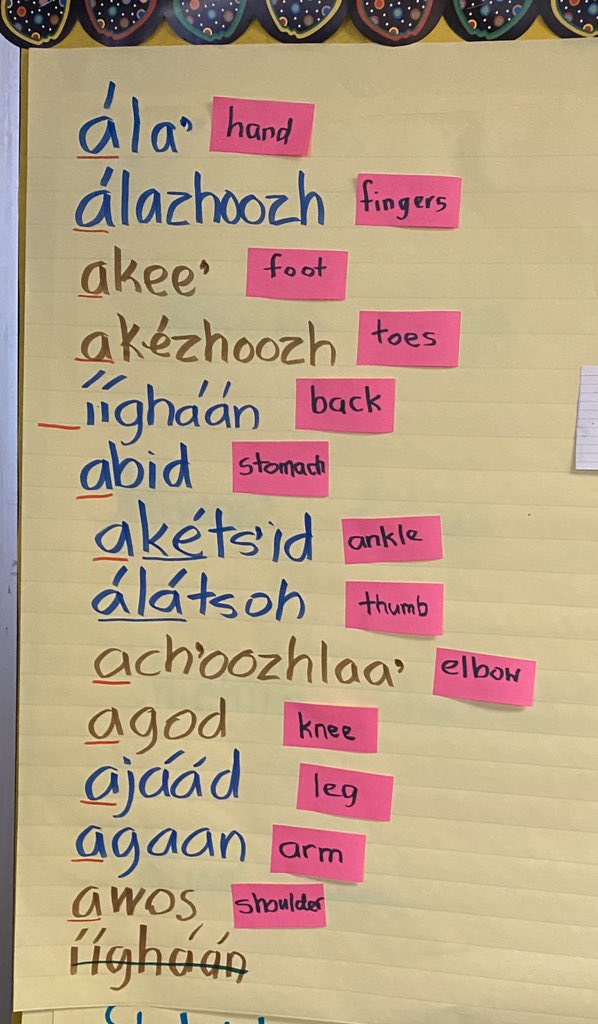 ála' hand
álazhoozh fingers
akee' foot
akézhoozh toes
_íígháán back
abid stomach
akéts'id ankle
álátsoh thumb
ach'oozhlaa' elbow
agod knee
ajáád leg
agaan arm
awos shoulder
íígháán